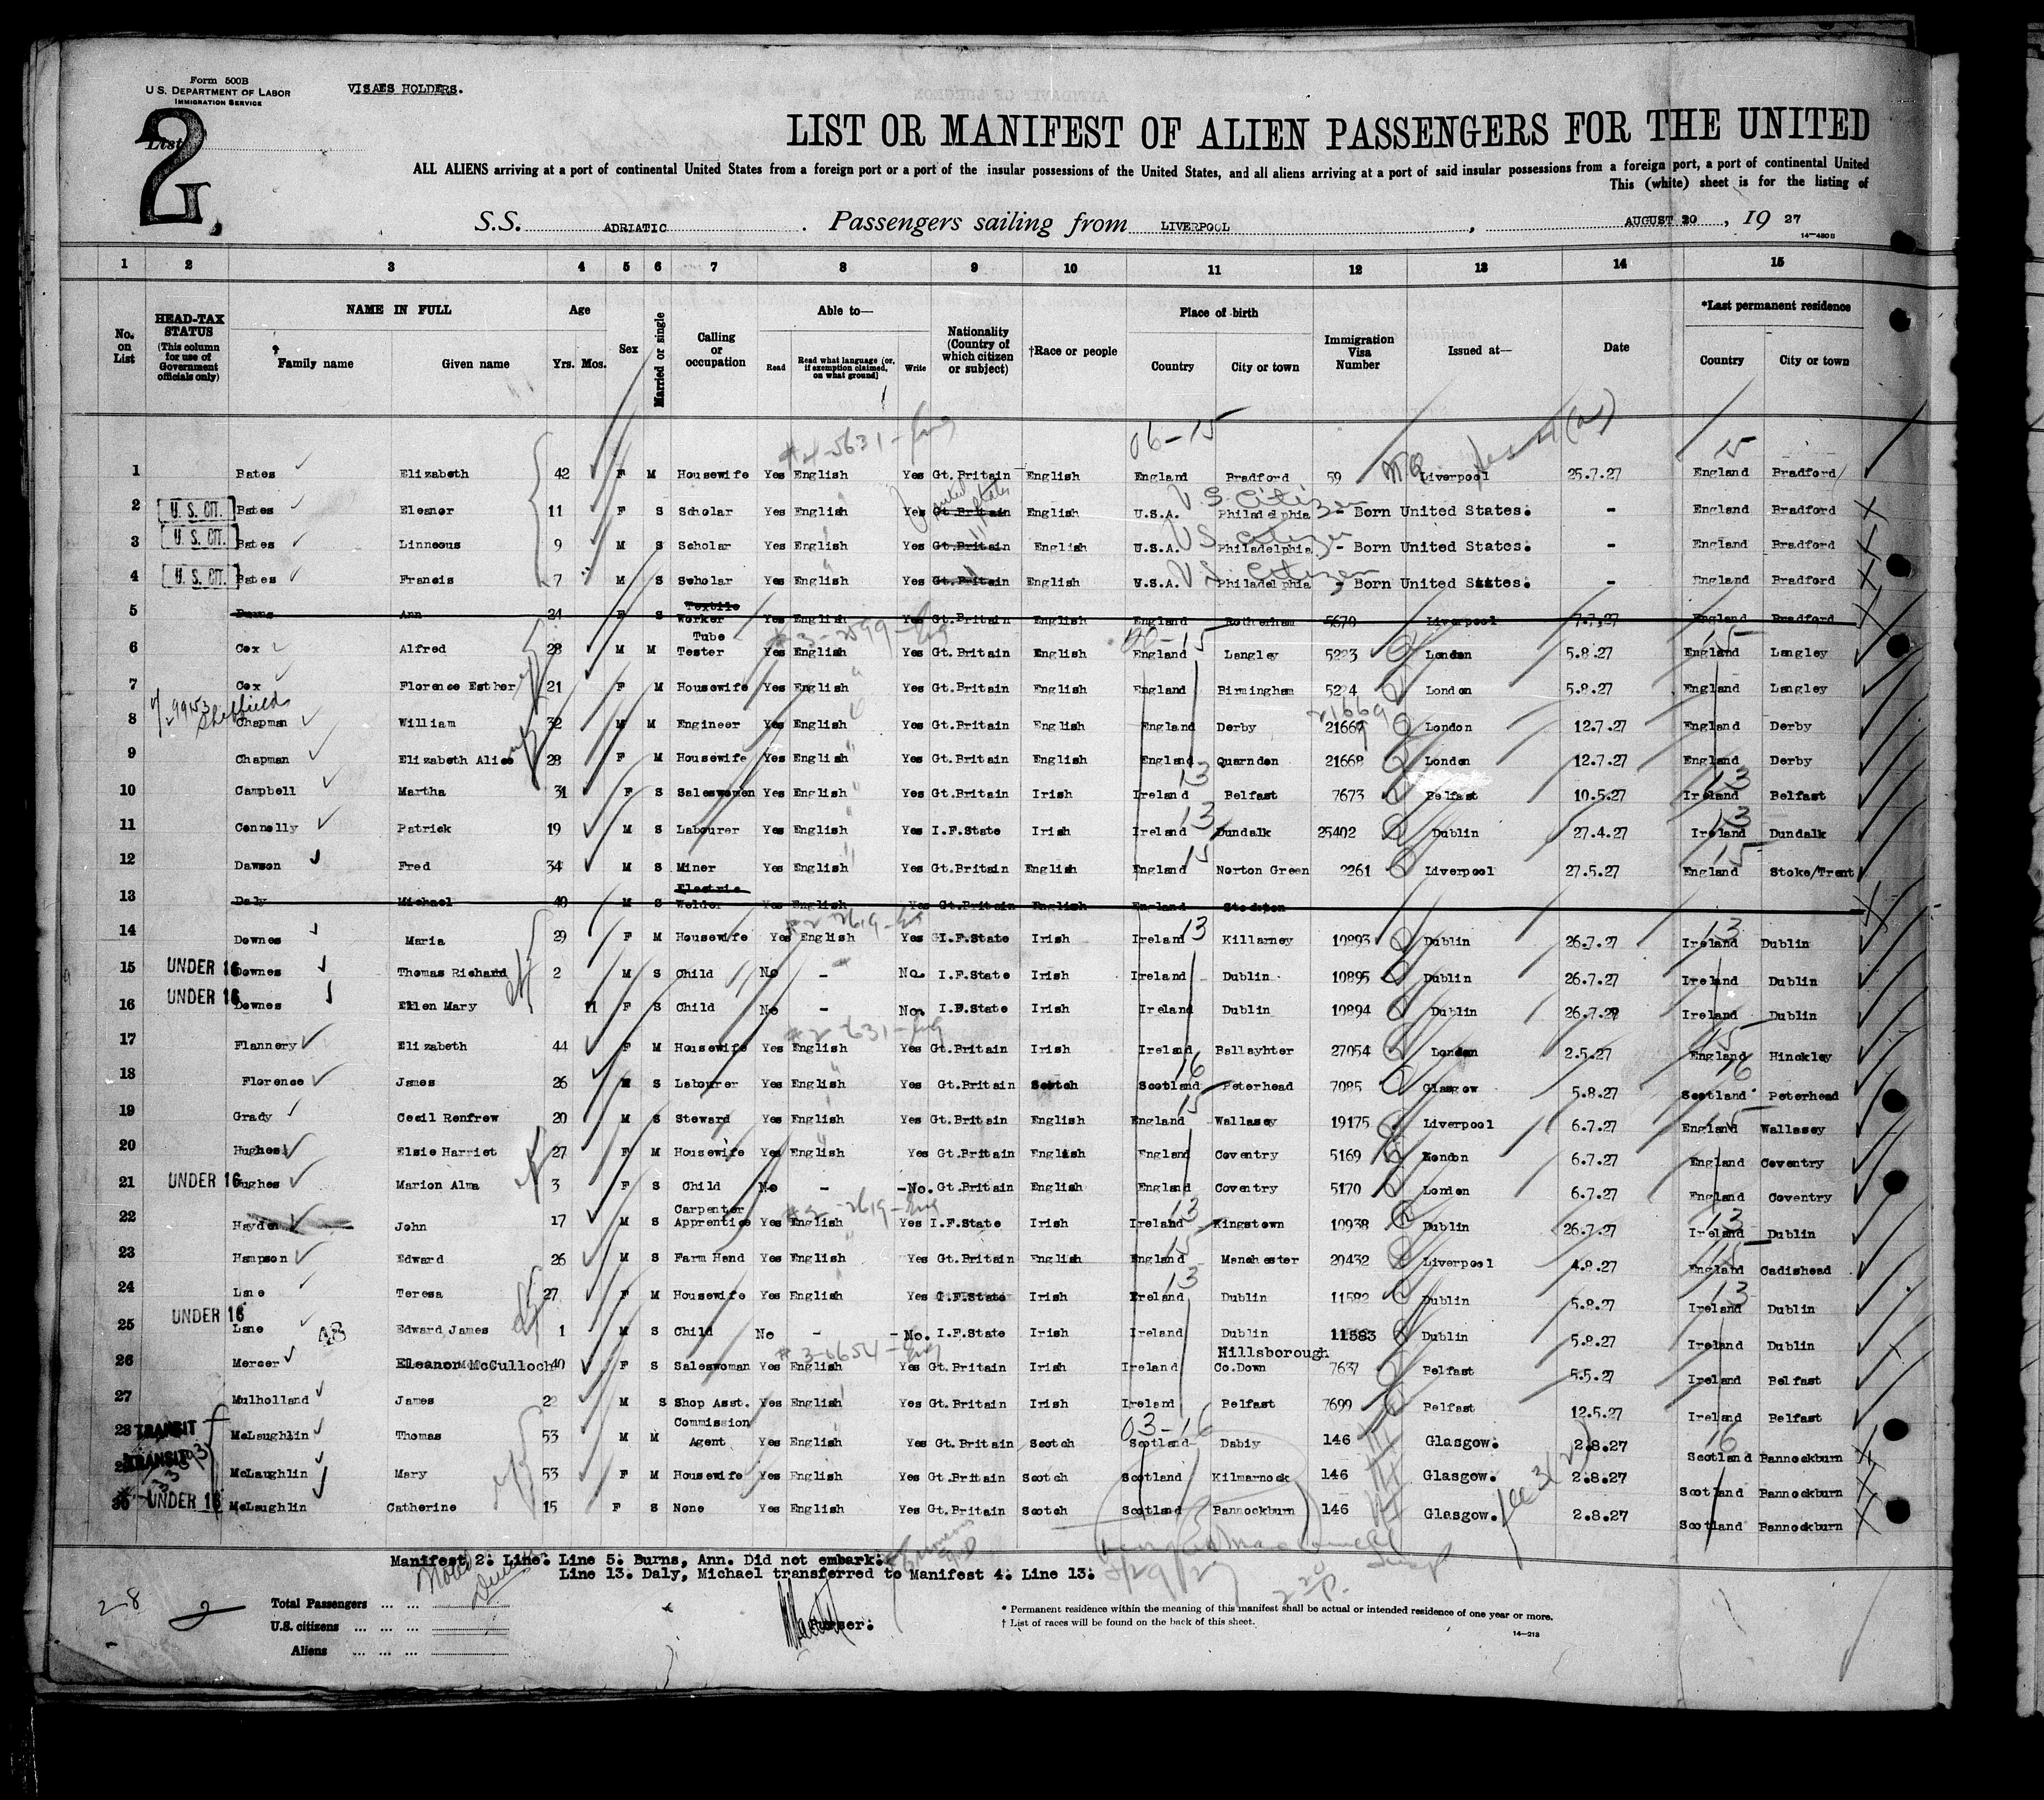 Form 500B
U.S. DEPARTMENT OF LABOR
IMMIGRATION SERVICE
VISAES HOLDERS.
List 2
LIST OR MANIFEST OF ALIEN PASSENGERS FOR THE UNITED
ALL ALIENS arriving at a port of continental United States from a foreign port or a port of the insular possessions of the United States, and all aliens arriving at a port of said insular possessions from a foreign port, a port of continental United
This (white) sheet is for the listing of
S.S. ADRIATIC . Passengers sailing from LIVERPOOL , AUGUST 20 , 19 27
14-480 B
1 2 3 4 5 6 7 8 9 10 11 12 13 14 15
No. on List HEAD-TAX STATUS (This column for use of Government officials only) NAME IN FULL Family name Given name Age Yrs. Mos. Sex Married or single Calling or occupation Able to— Read Read what language (or, if exemption claimed, on what ground) Write Nationality (Country of which citizen or subject) †Race or people Place of birth Country City or town Immigration Visa Number Issued at— Date *Last permanent residence Country City or town
06-15 15
1 Bates Elizabeth 42 F M Housewife Yes English Yes Gt.Britain English England Bradford 59 Liverpool 25.7.27 England Bradford
2 U. S. CIT. Bates Eleanor 11 F S Scholar Yes English Yes Gt.Britain United States English U.S.A. Philadelphia U.S. Citizen - Born United States: - England Bradford
3 U. S. CIT. Bates Linneous 9 M S Scholar Yes English Yes Gt.Britain English U.S.A. Philadelphia US Citizen - Born United States: - England Bradford
4 U. S. CIT. Bates Francis 7 M S Scholar Yes English Yes Gt.Britain English U.S.A. Philadelphia U.S. Citizen - Born United States: - England Bradford
5 Burns Ann 24 F S Textile Worker Yes English Yes Gt.Britain English England Rotherham 5670 Liverpool 7.7.27 England Bradford
6 Cox Alfred 28 M M Tube Tester Yes English Yes Gt.Britain English England Langley 5223 London 5.8.27 England Langley
7 Cox Florence Esther 21 F M Housewife Yes English Yes Gt.Britain English England Birmingham 5224 London 5.8.27 England Langley
8 Sheffield Chapman William 32 M M Engineer Yes English Yes Gt.Britain English England Derby 21669 London 12.7.27 England Derby
9 Chapman Elizabeth Alice 28 F M Housewife Yes English Yes Gt.Britain English England Quarndon 21668 London 12.7.27 England Derby
10 Campbell Martha 31 F S Saleswomen Yes English Yes Gt.Britain Irish Ireland Belfast 7673 Belfast 10.5.27 Ireland Belfast
11 Connolly Patrick 19 M S Labourer Yes English Yes I.F.State Irish Ireland Dundalk 25402 Dublin 27.4.27 Ireland Dundalk
12 Dawson Fred 34 M S Miner Yes English Yes Gt.Britain English England Norton Green 2261 Liverpool 27.5.27 England Stoke/Trent
13 Daly Michael 40 M S Electric Welder Yes English Yes Gt.Britain English England Stockton
14 Downes Maria 29 F M Housewife Yes English Yes I.F.State Irish Ireland Killarney 10893 Dublin 26.7.27 Ireland Dublin
15 UNDER 16 Downes Thomas Richard 2 M S Child No - No. I.F.State Irish Ireland Dublin 10895 Dublin 26.7.27 Ireland Dublin
16 UNDER 16 Downes Ellen Mary 11 F S Child No - No. I.F.State Irish Ireland Dublin 10894 Dublin 26.7.27 Ireland Dublin
17 Flannery Elizabeth 44 F M Housewife Yes English Yes Gt.Britain Irish Ireland Ballayhter 27054 London 2.5.27 England Hinckley
18 Florence James 26 M S Labourer Yes English Yes Gt.Britain Scotch Scotland Peterhead 7085 Glasgow 5.8.27 Scotland Peterhead
19 Grady Cecil Renfrew 20 M S Steward Yes English Yes Gt.Britain English England Wallasey 19175 Liverpool 6.7.27 England Wallasey
20 Hughes Elsie Harriet 27 F M Housewife Yes English Yes Gt.Britain English England Coventry 5169 London 6.7.27 England Coventry
21 UNDER 16 Hughes Marion Alma 3 F S Child No - -No. Gt.Britain English England Coventry 5170 London 6.7.27 England Coventry
22 Hayden John 17 M S Carpenter Apprentice Yes English Yes I.F.State Irish Ireland Kingstown 10938 Dublin 26.7.27 Ireland Dublin
23 Hampson Edward 26 M S Farm Hand Yes English Yes Gt.Britain English England Manchester 20432 Liverpool 4.8.27 England Cadishead
24 Lane Teresa 27 F M Housewife Yes English Yes I.F.State Irish Ireland Dublin 11582 Dublin 5.8.27 Ireland Dublin
25 UNDER 16 Lane Edward James 1 M S Child No - - No. I.F.State Irish Ireland Dublin 11583 Dublin 5.8.27 Ireland Dublin
26 Mercer Eleanor McCulloch 40 F S Saleswoman Yes English Yes Gt.Britain Irish Ireland Hillsborough Co.Down 7637 Belfast 5.5.27 Ireland Belfast
27 Mulholland James 22 M S Shop Asst. Yes English Yes Gt.Britain Irish Ireland Belfast 7699 Belfast 12.5.27 Ireland Belfast
28 TRANSIT McLaughlin Thomas 53 M M Commission Agent Yes English Yes Gt.Britain Scotch Scotland Dabiy 146 Glasgow. 2.8.27 Scotland Bannockburn
29 TRANSIT McLaughlin Mary 53 F M Housewife Yes English Yes Gt.Britain Scotch Scotland Kilmarnock 146 Glasgow. 2.8.27 Scotland Bannockburn
30 UNDER 16 McLaughlin Catherine 15 F S None Yes English Yes Gt.Britain Scotch Scotland Bannockburn 146 Glasgow. 2.8.27 Scotland Bannockburn
Manifest 2: Line: Line 5: Burns, Ann. Did not embark:
Line 13: Daly, Michael transferred to Manifest 4: Line 13:
Noted
2-8 2
Total Passengers ... ...
U.S. citizens ... ... ...
Aliens ... ... ...
Purser:
* Permanent residence within the meaning of this manifest shall be actual or intended residence of one year or more.
† List of races will be found on the back of this sheet.
14-213